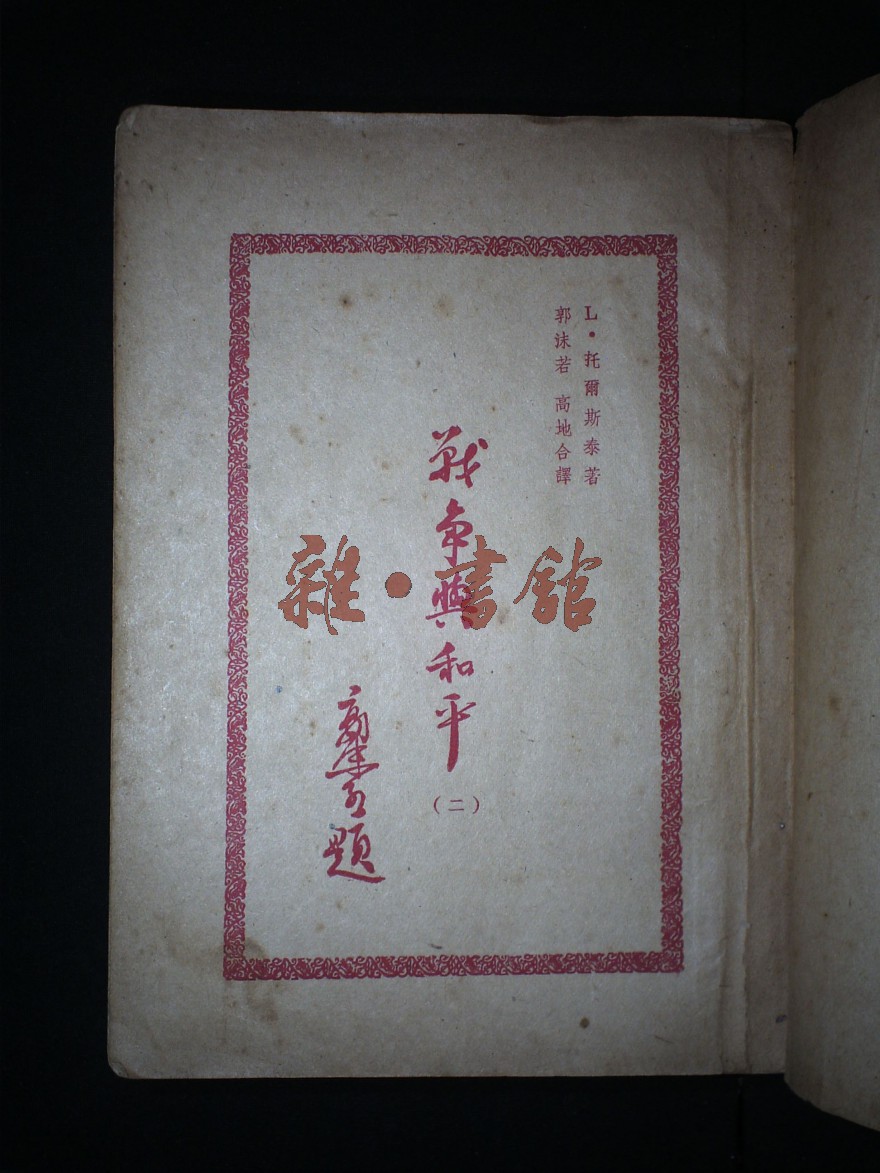 L・托爾斯泰著
郭沫若 高地合譯
戰爭與和平
(二)
郭沫若題
雜・書館